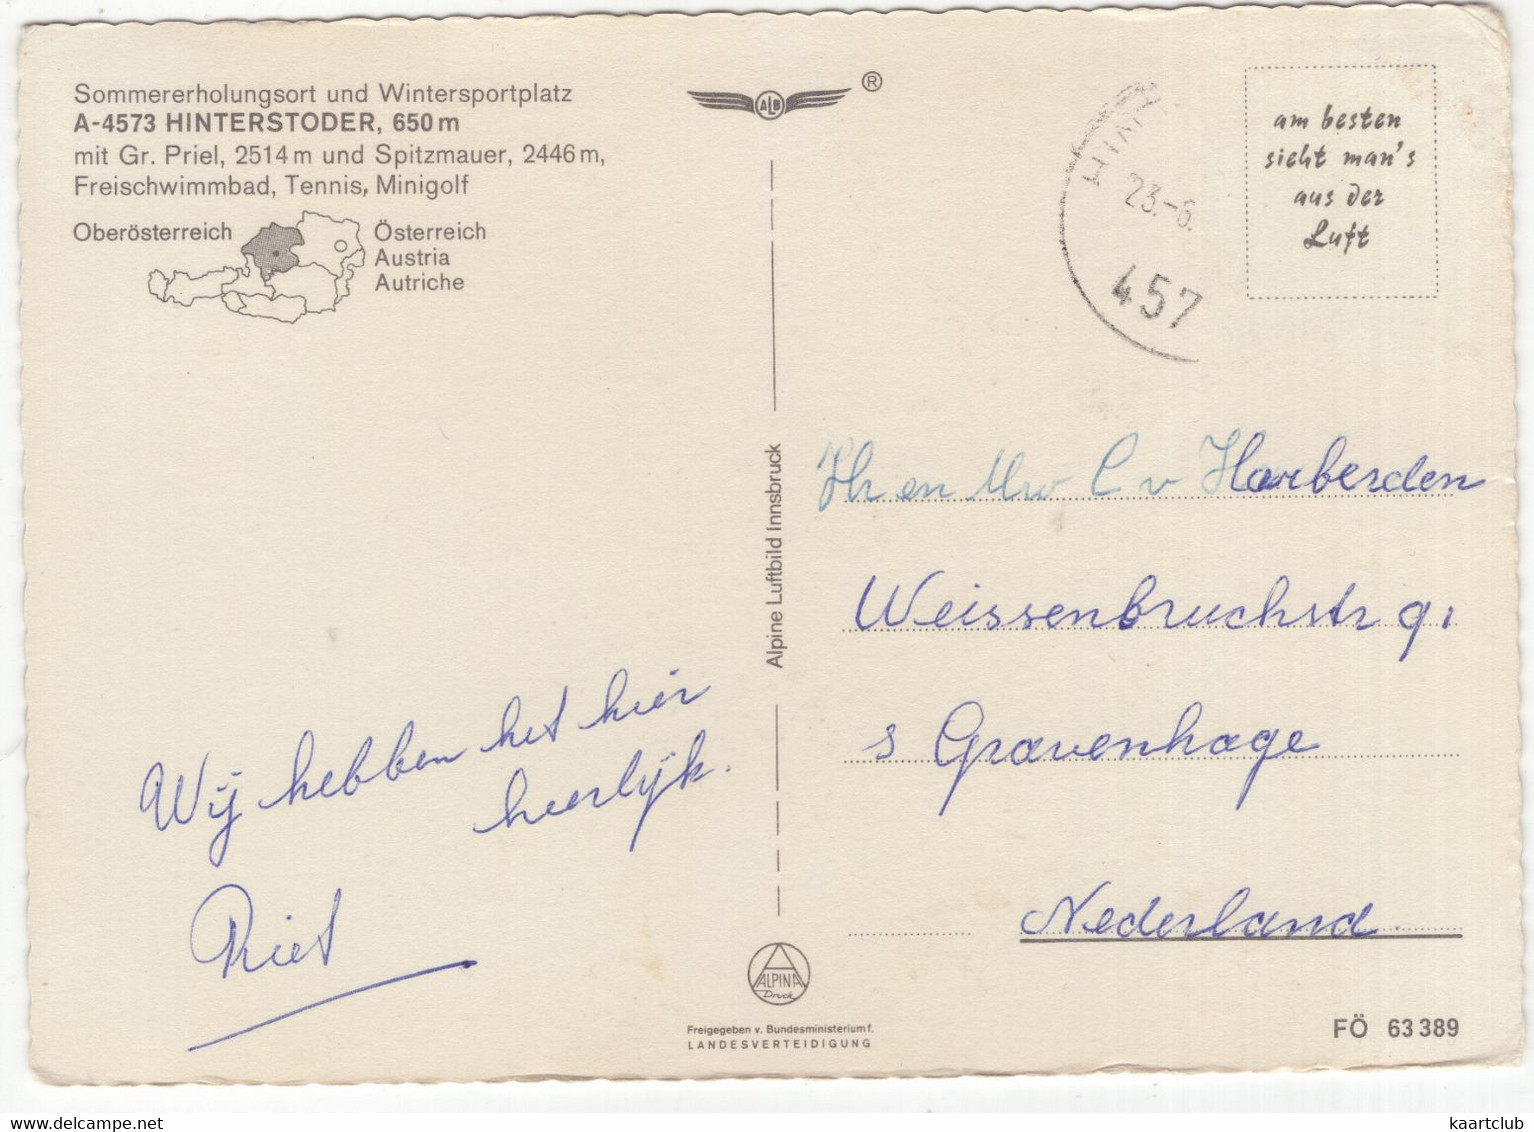 Sommererholungsort und Wintersportplatz
A-4573 HINTERSTODER, 650 m
mit Gr. Priel, 2514 m und Spitzmauer, 2446 m,
Freischwimmbad, Tennis, Minigolf
Oberösterreich
Österreich
Austria
Autriche
ALB
®
23.-6.
457
am besten
sieht man's
aus der
Luft
Alpine Luftbild Innsbruck
Wij hebben het hier
heerlijk.
Riet
Hr en Mw C v Harberden
Weissenbruchstr 91
s Gravenhage
Nederland
ALPINA
Druck
Freigegeben v. Bundesministerium f.
LANDESVERTEIDIGUNG
FÖ 63 389
kaartclub